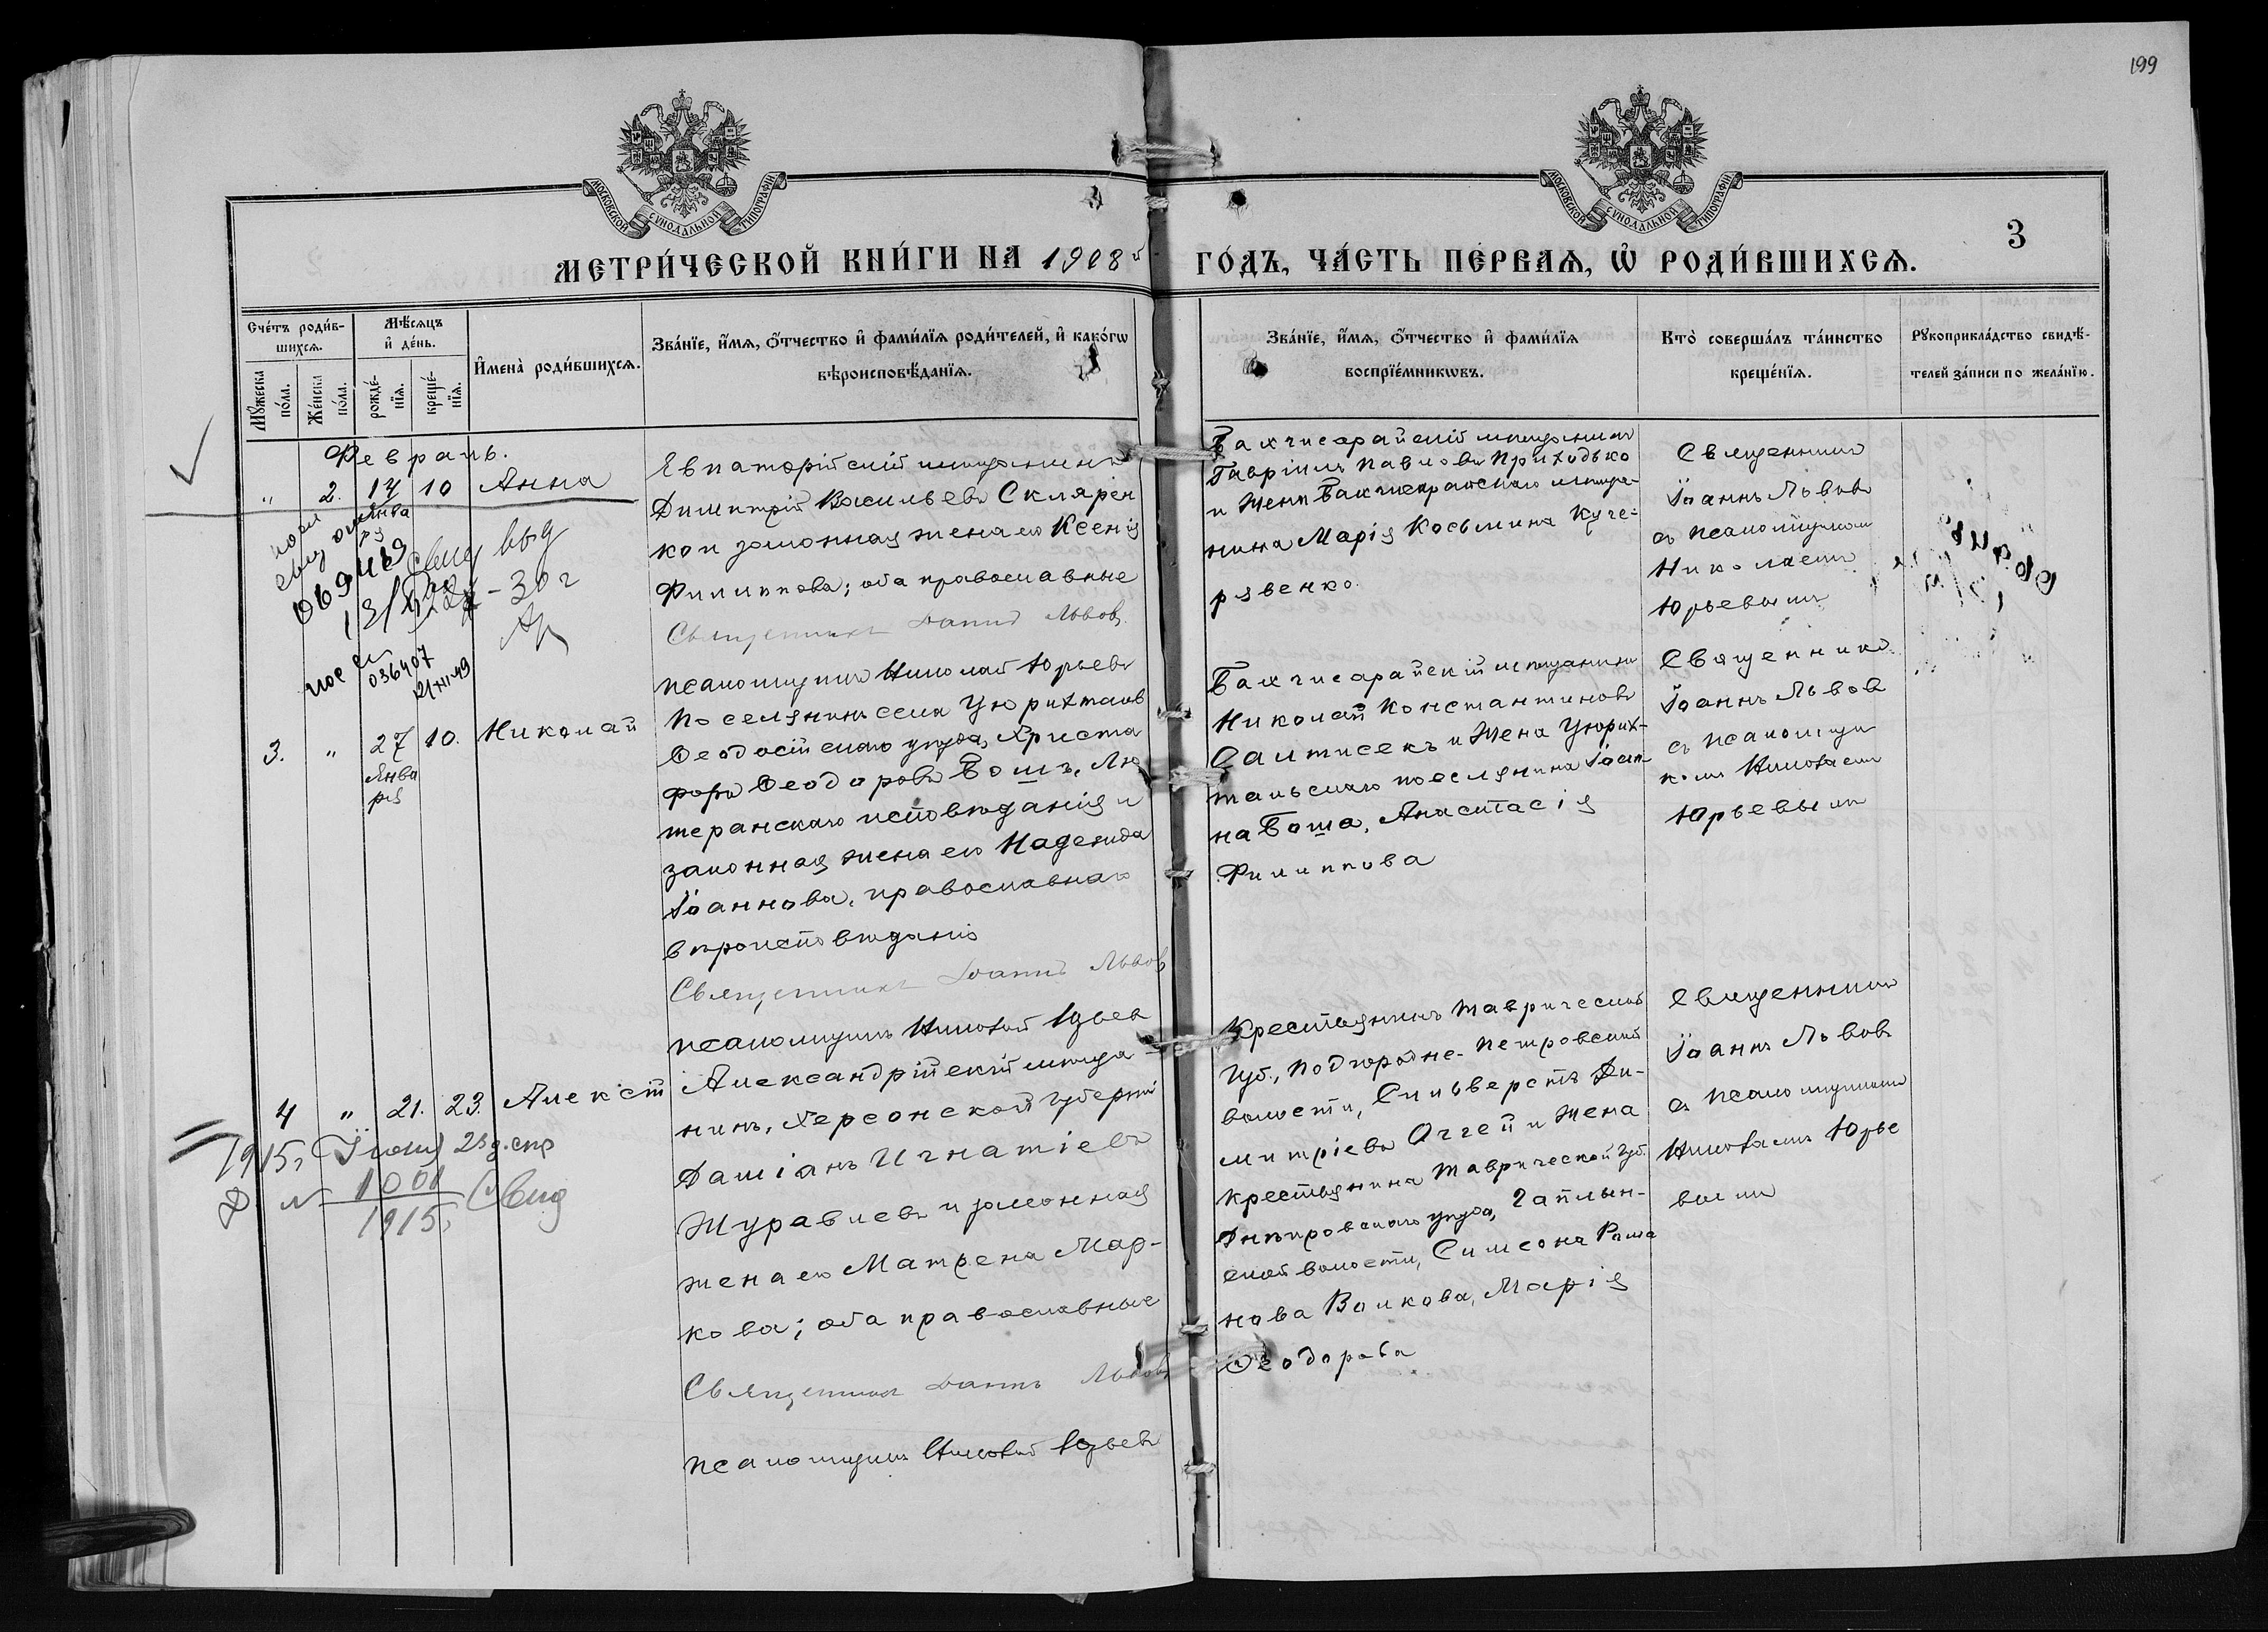 199
МОСКОВСКОЙ СѴНОДАЛЬНОЙ ТИПОГРАФІИ
МОСКОВСКОЙ СѴНОДАЛЬНОЙ ТИПОГРАФІИ
3
МЕТРИ́ЧЕСКОЙ КНИ́ГИ НА 1908й ГО́ДЪ, ЧА́СТЬ ПЕ́РВАѦ, Ѡ҆ РОДИ́ВШИХСѦ.
Сче́тъ роди́в-
шихсѧ.
Мꙋ́жеска
по́ла.
Же́нска
по́ла.
Мѣ́сѧцъ
и҆ де́нь.
рожде́-
нїѧ.
креще́-
нїѧ.
И҆мена̀ роди́вшихсѧ.
Зва́нїе, и҆́мѧ, ѻ҆́тчество и҆ фами́лїѧ роди́телей, и҆ како́гѡ
вѣроисповѣ́данїѧ.
Зва́нїе, и҆́мѧ, ѻ҆́тчество и҆ фами́лїѧ
воспрїе́мникѡвъ.
Кто̀ соверша́лъ та́инство
креще́нїѧ.
Рꙋкоприкла́дство свидѣ́-
телей за́писи по жела́нїю.
Февраль.
" 2. 14 10 Анна
Янва
ря
Евпаторійскій мѣщанинъ
Димитрій Васильевъ Склярен
ко и законная жена его Ксенія
Филиппова; оба православные
Священникъ Іоаннъ Львовъ
псаломщикъ Николай Юрьевъ
Бахчисарайскій мѣщанинъ
Гавріилъ Павловъ Приходько
и жена Бахчисарайскаго мѣща-
нина Марія Косьмина Куче-
рявенко
Священникъ
Іоаннъ Львовъ
съ псаломщикомъ
Николаемъ
Юрьевымъ
Свид выд
30 г
069469
036407
21 XII-49
3. " 27 10. Николай
Янва
ря
Поселянинъ села Цюрихталь
Ѳеодосійскаго уѣзда, Христо
форъ Ѳеодоровъ Бошъ, Лю
теранскаго исповѣданія и
законная жена его Надежда
Іоаннова, православнаго
вѣроисповѣданія
Священникъ Іоаннъ Львовъ
псаломщикъ Николай Юрьевъ
Бахчисарайскій мѣщанинъ
Николай Константиновъ
Салтисекъ и жена Цюрих-
тальскаго поселянина Іоан-
на Боша, Анастасія
Филиппова
Священникъ
Іоаннъ Львовъ
съ псаломщи
комъ Николаемъ
Юрьевымъ
4 " 21. 23. Алексѣй
1915 г. Іюня 23 д. спр
№ 1001
1915 г. Свид
Александрійскій мѣща-
нинъ, Херсонской губерніи
Даміанъ Игнатіевъ
Журавлевъ и законная
жена его Матрена Мар-
кова; оба православные
Священникъ Іоаннъ Львовъ
псаломщикъ Николай Юрьевъ
Крестьянинъ Таврической
губ., Подгородне-Петровской
волости, Сильверстъ Ди-
митріевъ Аггей и жена
крестьянина Таврической губ.
Днѣпровскаго уѣзда, Чаплын-
ской волости, Симеона Рома
нова Волкова, Марія
Ѳеодорова
Священникъ
Іоаннъ Львовъ
съ псаломщикомъ
Николаемъ Юрье
вымъ